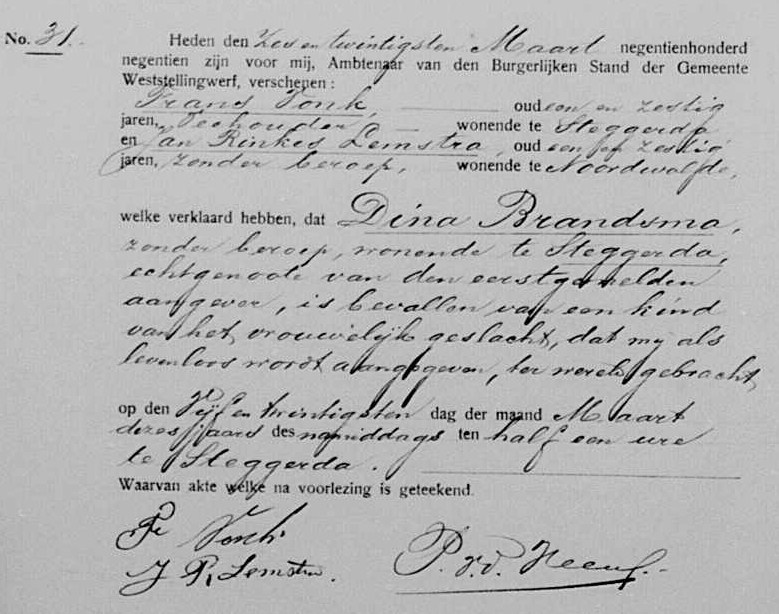 No. 31.
Heden den Zes en twintigsten Maart negentienhonderd
negentien zijn voor mij, Ambtenaar van den Burgerlijken Stand der Gemeente
Weststellingwerf, verschenen:
Frans Vonk, oud een en zestig
jaren, Veehouder wonende te Steggerda
en Jan Rinkes Lemstra, oud een en zestig
jaren, zonder beroep, wonende te Noordwolde,
welke verklaard hebben, dat Dina Brandsma,
zonder beroep, wonende te Steggerda,
echtgenoote van den eerstgemelden
aangever, is bevallen van een kind
van het vrouwelijk geslacht, dat mij als
levenloos wordt aangegeven, ter wereld gebracht,
op den Vijf en twintigsten dag der maand Maart
dezes jaars des namiddags ten half een ure
te Steggerda.
Waarvan akte welke na voorlezing is geteekend.
Fr Vonk
J R Lemstra.
P. v. d.